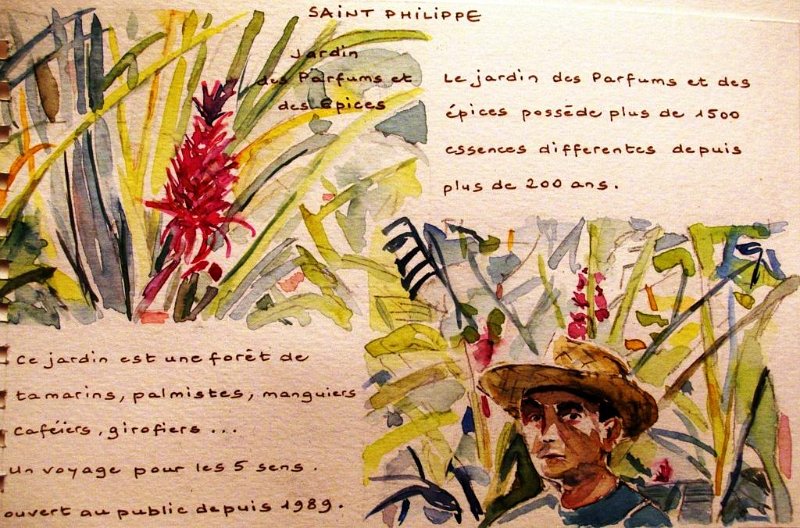 SAINT PHILIPPE
Jardin
des Parfums et
des Épices
Le jardin des Parfums et des
épices possède plus de 1500
essences differentes depuis
plus de 200 ans.
Ce jardin est une forêt de
tamarins, palmistes, manguiers
caféiers, girofiers ...
un voyage pour les 5 sens.
ouvert au public depuis 1989.